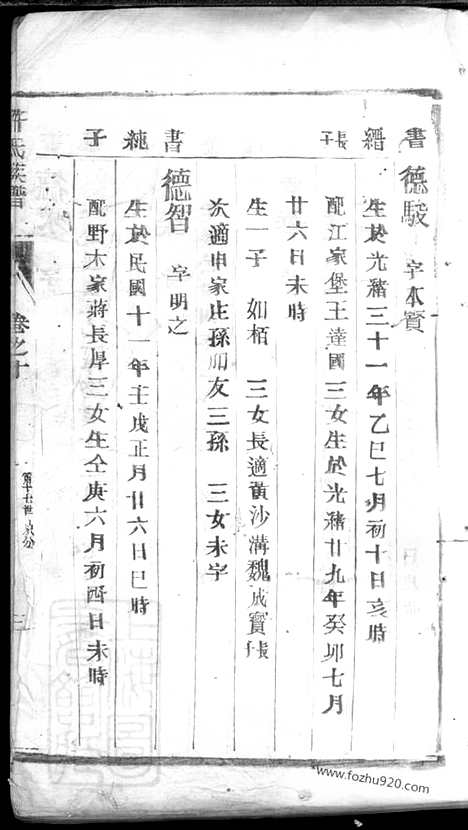 書縉長
德駿 字本賓
生於光緒三十一年乙巳七月初十日亥時
配江家堡王達國三女生於光緒廿九年癸卯七月
廿六日未時
生一子 如栢 三女長適黃沙溝魏成賓長
次適申家庄孫如友三孫 三女未字
書純子
德智 字明之
生於民國十一年壬戌正月廿六日巳時
配野木家蔣長厚三女生仝庚六月初酉日未時
許氏族譜
卷之十
第十七世 長分
三
www.fozhu920.com